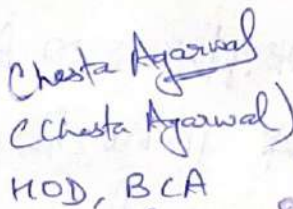 Chesta Agarwal
(Chesta Agarwal)
HOD, BCA